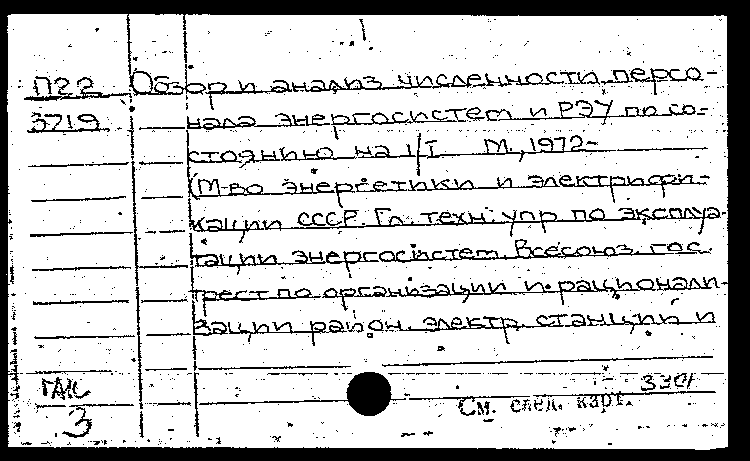 П22 Обзор и анализ численности персо-
3719 нала энергосистем и РЭУ по со-
стоянию на 1/I М., 1972-
(М-во энергетики и электрифи-
кации СССР. Гл. техн. упр по эксплуа-
тации энергосистем. Всесоюз. гос.
трест по организации и рационали-
зации район. электр. станций и
3
См. след. карт.